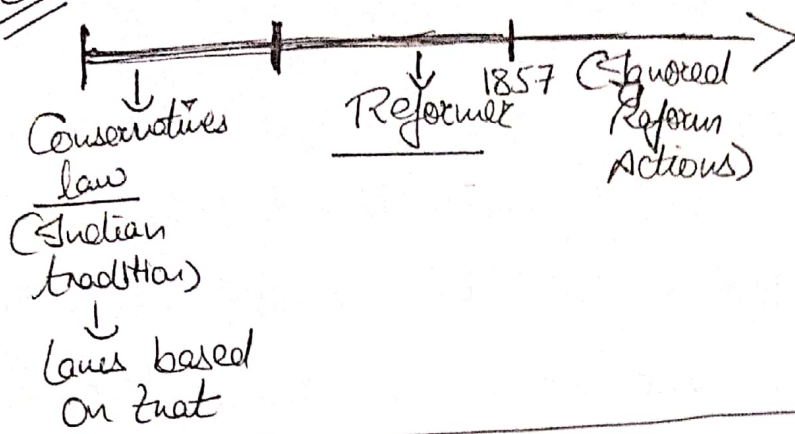 Conservatives
law
(Indian
tradition)
Laws based
on that
Reformer
1857 (Ignored
Reform
Actions)